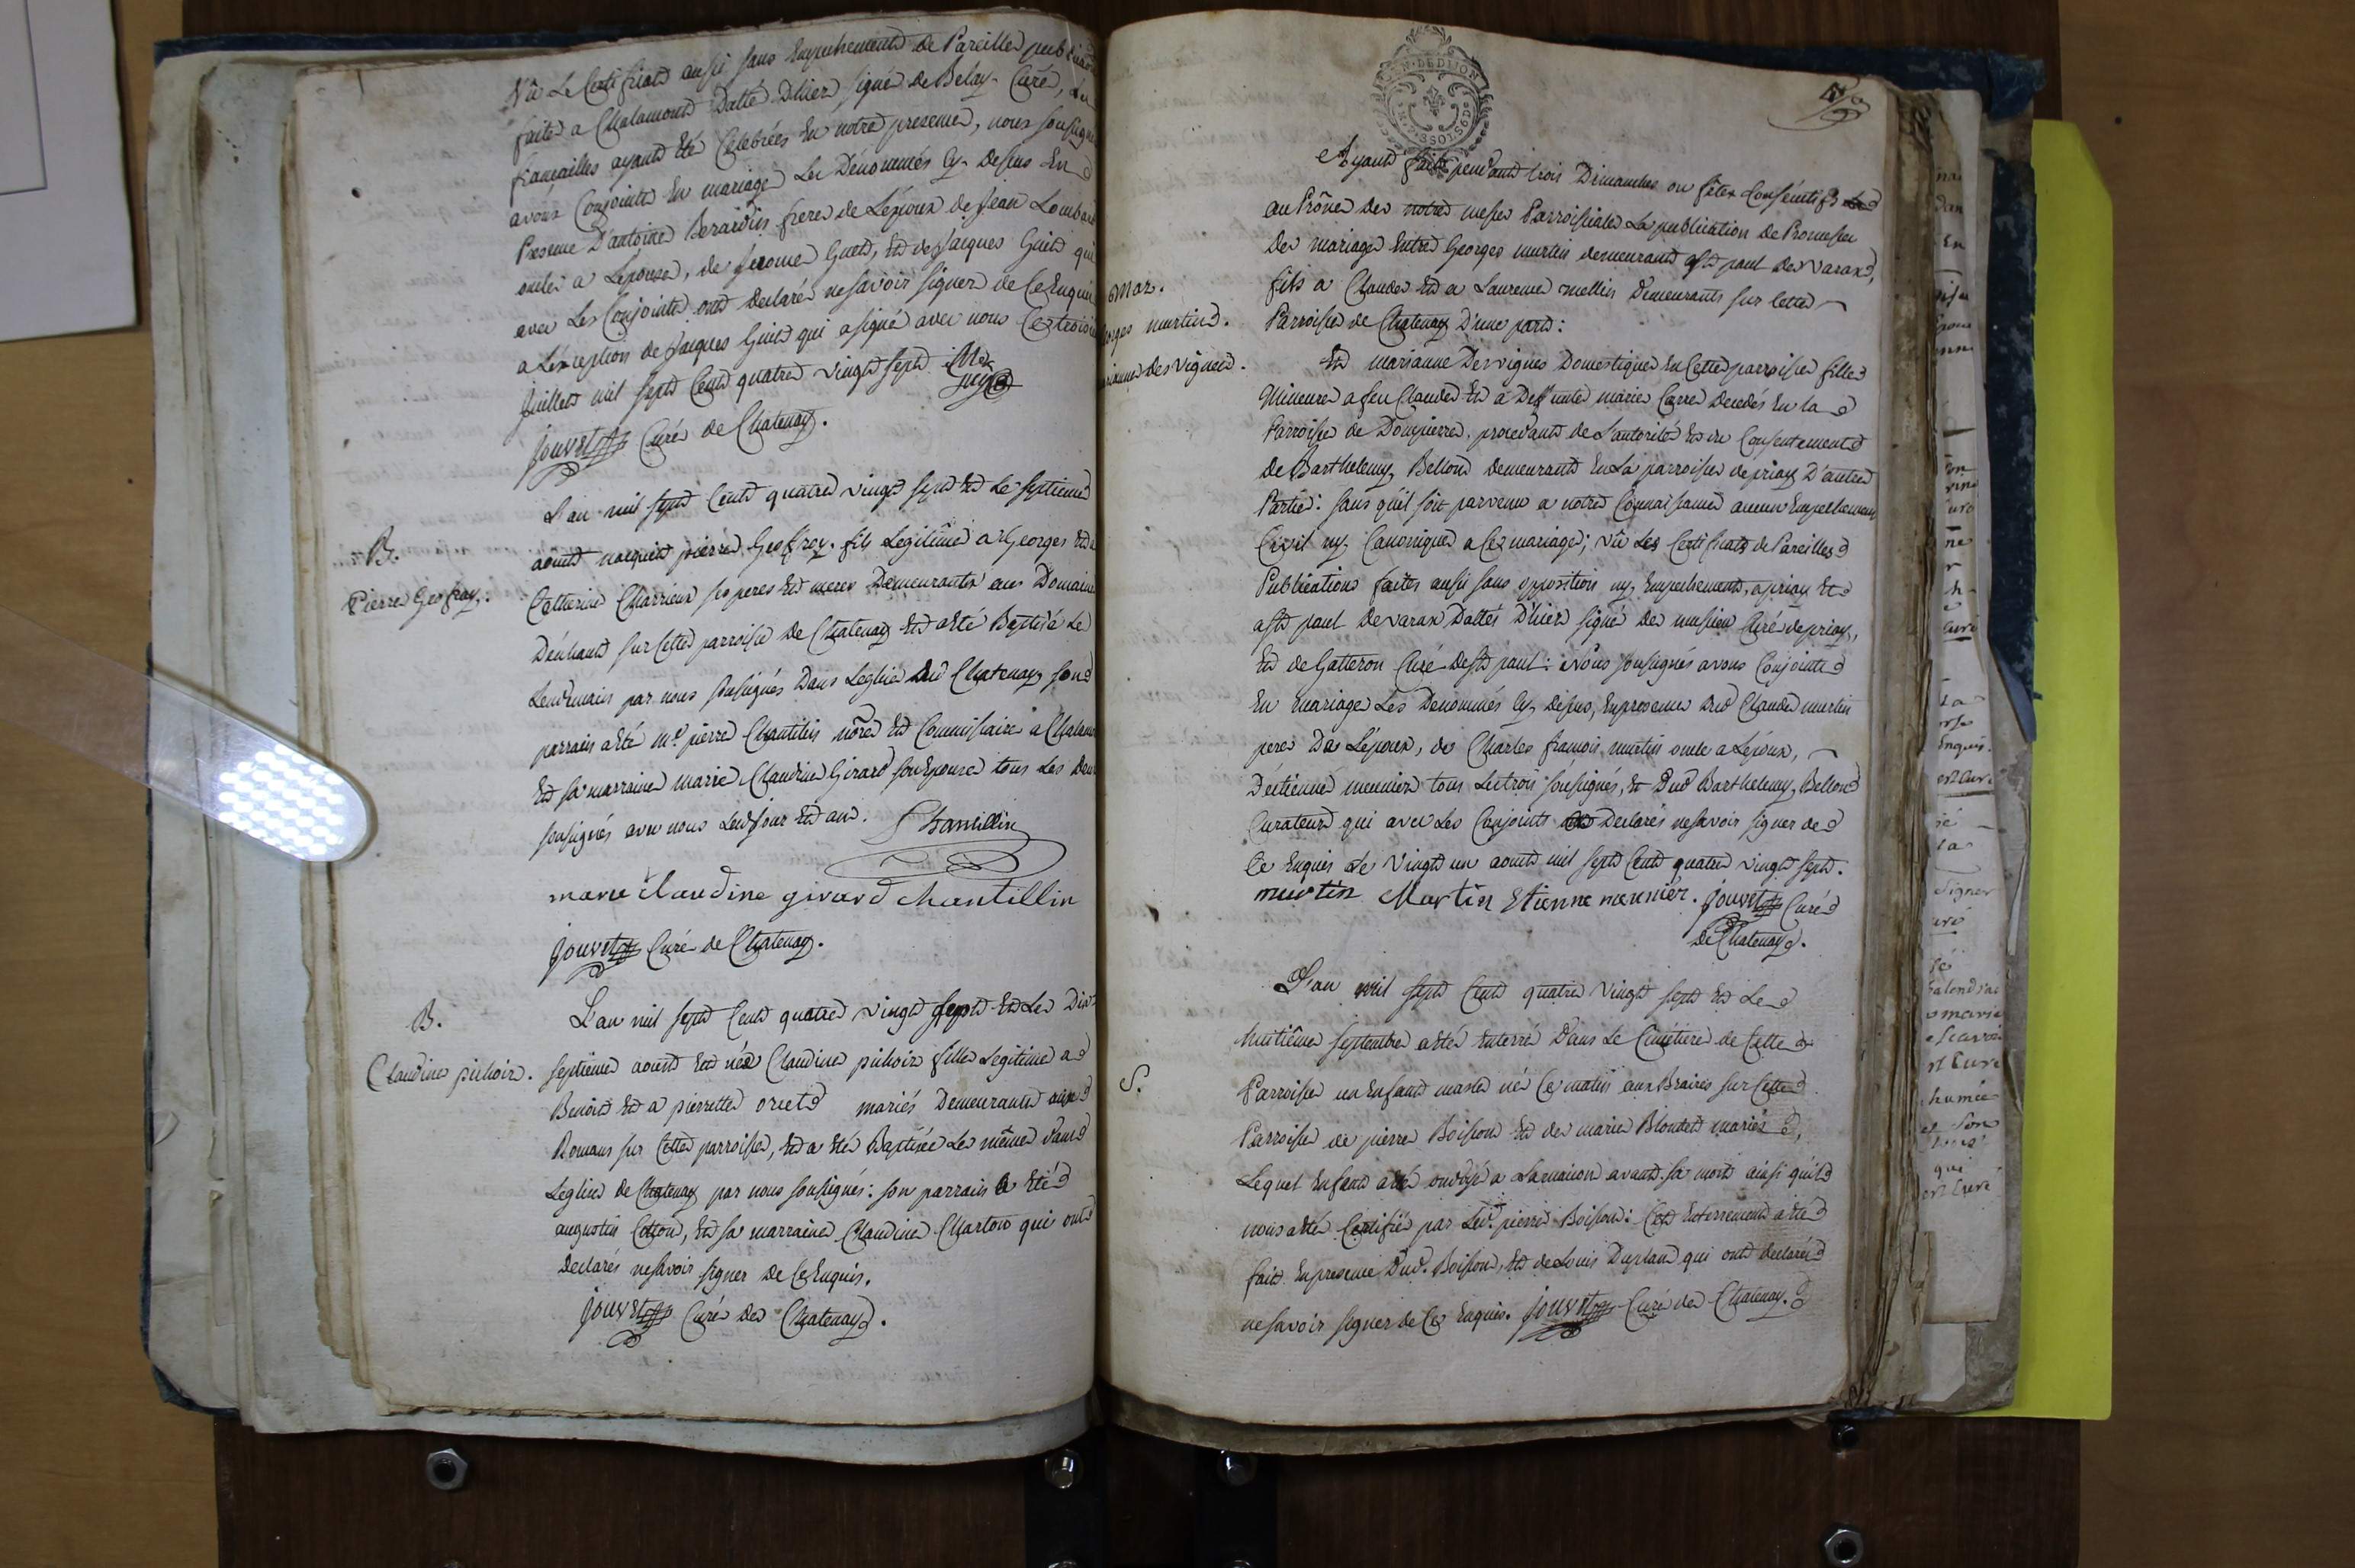 Vû Le Certificat aussi sans Empechement de Pareilles publications
faites a Chalamont Datté D'hier signé de Belay Curé, Les
fiançailles ayant Eté Celebrées En notre presence, nous soussigné
avons Conjoint En mariage Les Dénommés Cy-Dessus En
Presence D'antoine Berardin frere de L'époux de Jean Lombard
oncle a L'epouse, de Jerome Guet, Et de Jacques Guet qui
avec Les Conjoints ont Declaré ne savoir signer de Ce Enquis
a L'éxception de Jacques Guet qui a signé avec nous Ce troisieme
Juillet mil sept Cent quatre vingt sept.
jouvet Curé de Chatenay.
B.
Pierre Geofray.
L'an mil sept Cent quatre vingt sept Et Le septieme
aoust naquit pierre Geoffroy fils Légitime a Georges Et a
Catherine Charrieux ses peres Et meres Demeurants au Domaine
sur Cette parroisse de Chatenay Et a Eté Baptisé Le
Lendemain par nous soussignés Dans Leglise Dud Chatenay son
parrain a Eté me pierre Chantillin nore Et Commissaire a Chalamont
Et sa marraine marie Claudine Girard son Epouse tous Les Deux
soussignés avec nous Lesd jour Et an. Chantillin
marie claudine girard chantillin
jouvet Curé de Chatenay.
B.
Claudine pichoir.
L'an mil sept Cent quatre vingt sept Et Le Dix
septieme aoust Est née Claudine pichoir fille Legitime a
Benoit Et a pierrette oriet mariés Demeurants aux
Romans sur Cette parroisse, Et a Eté Baptisée Le même Dans
Leglise de Chatenay par nous soussignés: son parrain a Eté
augustin Cotton, Et sa marraine Claudine Charton qui ont
Declarés ne savoir signer De Ce Enquis.
jouvet Curé De Chatenay.
GEN. DE DIJON
3 SOLS 6 D
Ayant fait pendant trois Dimanches ou fêtes Consécutifs
au Prône de notre messe Parroissiale La publication de Promesses
De mariage Entre Georges murtin demeurant a st paul De varax,
fils a Claude Et a Laurence mellin Demeurants sur Cette
Parroisse de Chatenay D'une part:
Mar.
orges murtin.
ianne des vignes.
Et marianne Desvignes Domestique En Cette parroisse fille
Mineure a feu Claude Et a Deffunte marie Carre Decedés En la
Parroisse de Dompierre, procedant de L'autorité Et du Consentement
de Barthelemy Bellon Demeurant En La parroisse de priay D'autre
Partie: sans qu'il soit parvenu a notre Connaissance aucun Empechement
Civil ny Canonique a Ce mariage; Vû Les Certificats de Pareilles
Publications faites aussi sans opposition ny Empechement, a priay Et
a st paul De varax Dattés D'hier signé De musieu Curé de priay,
Et de Gatteron Curé de st paul: Nous soussignés avons Conjoint
En mariage Les Denommés Cy Dessus, En presence Dud Claude murtin
pere De L'époux, de Charles françois murtin oncle a L'époux,
D'étienne meunier tous Les trois soussignés, Et Dud Barthelemy Bellon
Curateur qui avec Les Conjoints ont Declarés ne savoir signer de
Ce Enquis Le Vingt un aoust mil sept Cent quatre vingt sept.
murtin Martin Etienne meunier. jouvet Curé
de Chatenay.
S.
L'an mil sept Cent quatre Vingt sept Et Le
huitième septembre a Eté Enterré Dans Le Cimetiere de Cette
Parroisse un Enfant masle né Ce matin aux Braires sur Cette
Parroisse de pierre Boisson Et de marie Blondet mariés,
Lequel Enfant a Eté ondoyé a La maison avant sa mort ainsi qu'il
nous a Eté Certifié par Led. pierre Boisson: Cet Enterrement a Eté
fait En presence Dud. Boisson, Et de Louis Duplan qui ont declaré
ne savoir signer de Ce Enquis. jouvet Curé de Chatenay.